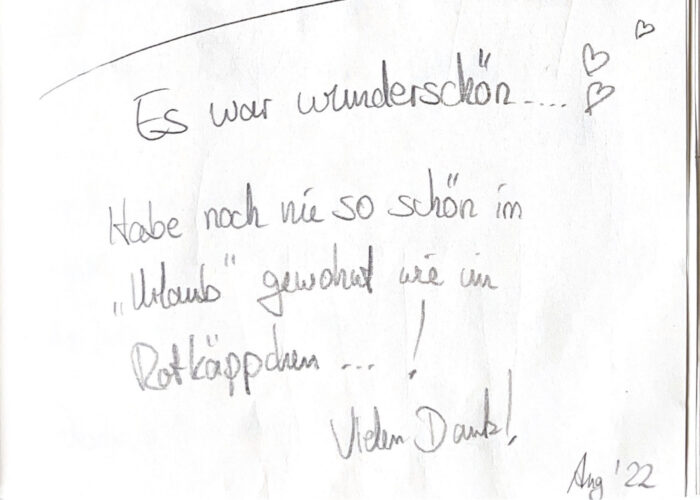 Es war wunderschön.....
Habe noch nie so schön im
„Urlaub" gewohnt wie im
Rotkäppchen ... !
Vielen Dank!
Aug '22